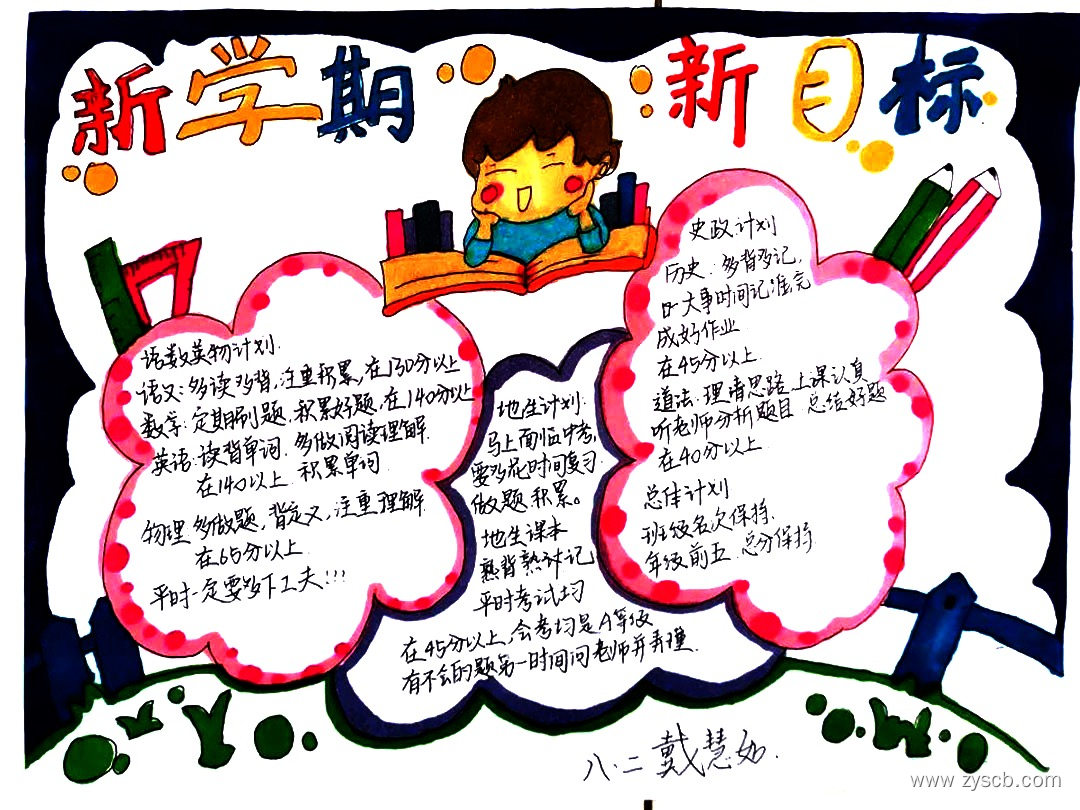 新学期 新目标
语数英物计划.
语文:多读多背,注重积累,在130分以上
数学:定期刷题,积累好题,在140分以上
英语:读背单词.多做阅读理解.
在140以上.积累单词.
物理 多做题,背定义,注重理解.
在65分以上.
平时一定要多下工夫!!!
地生计划.
马上面临中考,
要多花时间复习.
做题积累。
地生课本
熟背熟讨记
平时考试均
在45分以上,会考均是A等级
有不会的题第一时间问老师并弄懂.
史政计划
历史.多背多记,
大事时间记准完
成好作业.
在45分以上.
道法:理清思路 上课认真
听老师分析题目 总结好题
在40分以上
总体计划
班级名次保持.
年级前五 总分保持.
八·二 戴慧如.
www.zyscb.com